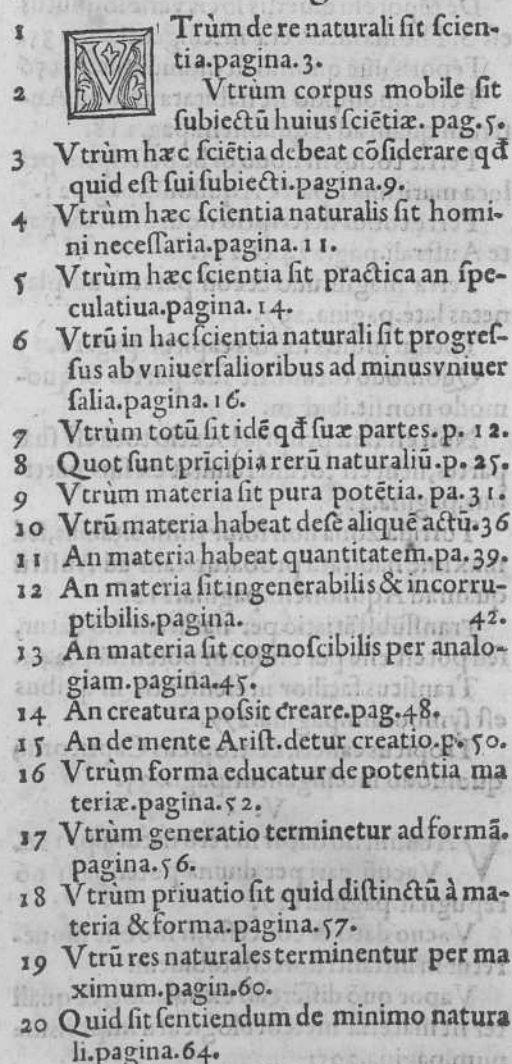 1 VTrùm de re naturali ſit ſcien-
tia.pagina.3.
2 Vtrum corpus mobile ſit
ſubiectū huius ſciētiæ. pag.5.
3 Vtrùm hæc ſciētia debeat cōſiderare qđ
quid eſt ſui ſubiecti.pagina.9.
4 Vtrùm hæc ſcientia naturalis ſit homi-
ni neceſſaria.pagina.11.
5 Vtrùm hæc ſcientia ſit practica an ſpe-
culatiua.pagina.14.
6 Vtrū in hac ſcientia naturali ſit progreſ-
ſus ab vniuerſalioribus ad minusvniuer
ſalia.pagina.16.
7 Vtrùm totū ſit idē qđ ſuæ partes. p. 12.
8 Quot ſunt prīcipia rerū naturaliū.p. 25.
9 Vtrùm materia ſit pura potētia. pa.31.
10 Vtrū materia habeat deſe aliquē actū.36
11 An materia habeat quantitatem.pa.39.
12 An materia ſit ingenerabilis & incorru-
ptibilis.pagina. 42.
13 An materia ſit cognoſcibilis per analo-
giam.pagina.45.
14 An creatura poſsit creare.pag.48.
15 An de mente Ariſt.detur creatio.p. 50.
16 Vtrùm forma educatur de potentia ma
teriæ.pagina.52.
17 Vtrùm generatio terminetur ad formā.
pagina.56.
18 Vtrùm priuatio ſit quid diſtinctū à ma-
teria & forma.pagina.57.
19 Vtrū res naturales terminentur per ma
ximum.pagin.60.
20 Quid ſit ſentiendum de minimo natura
li.pagina.64.